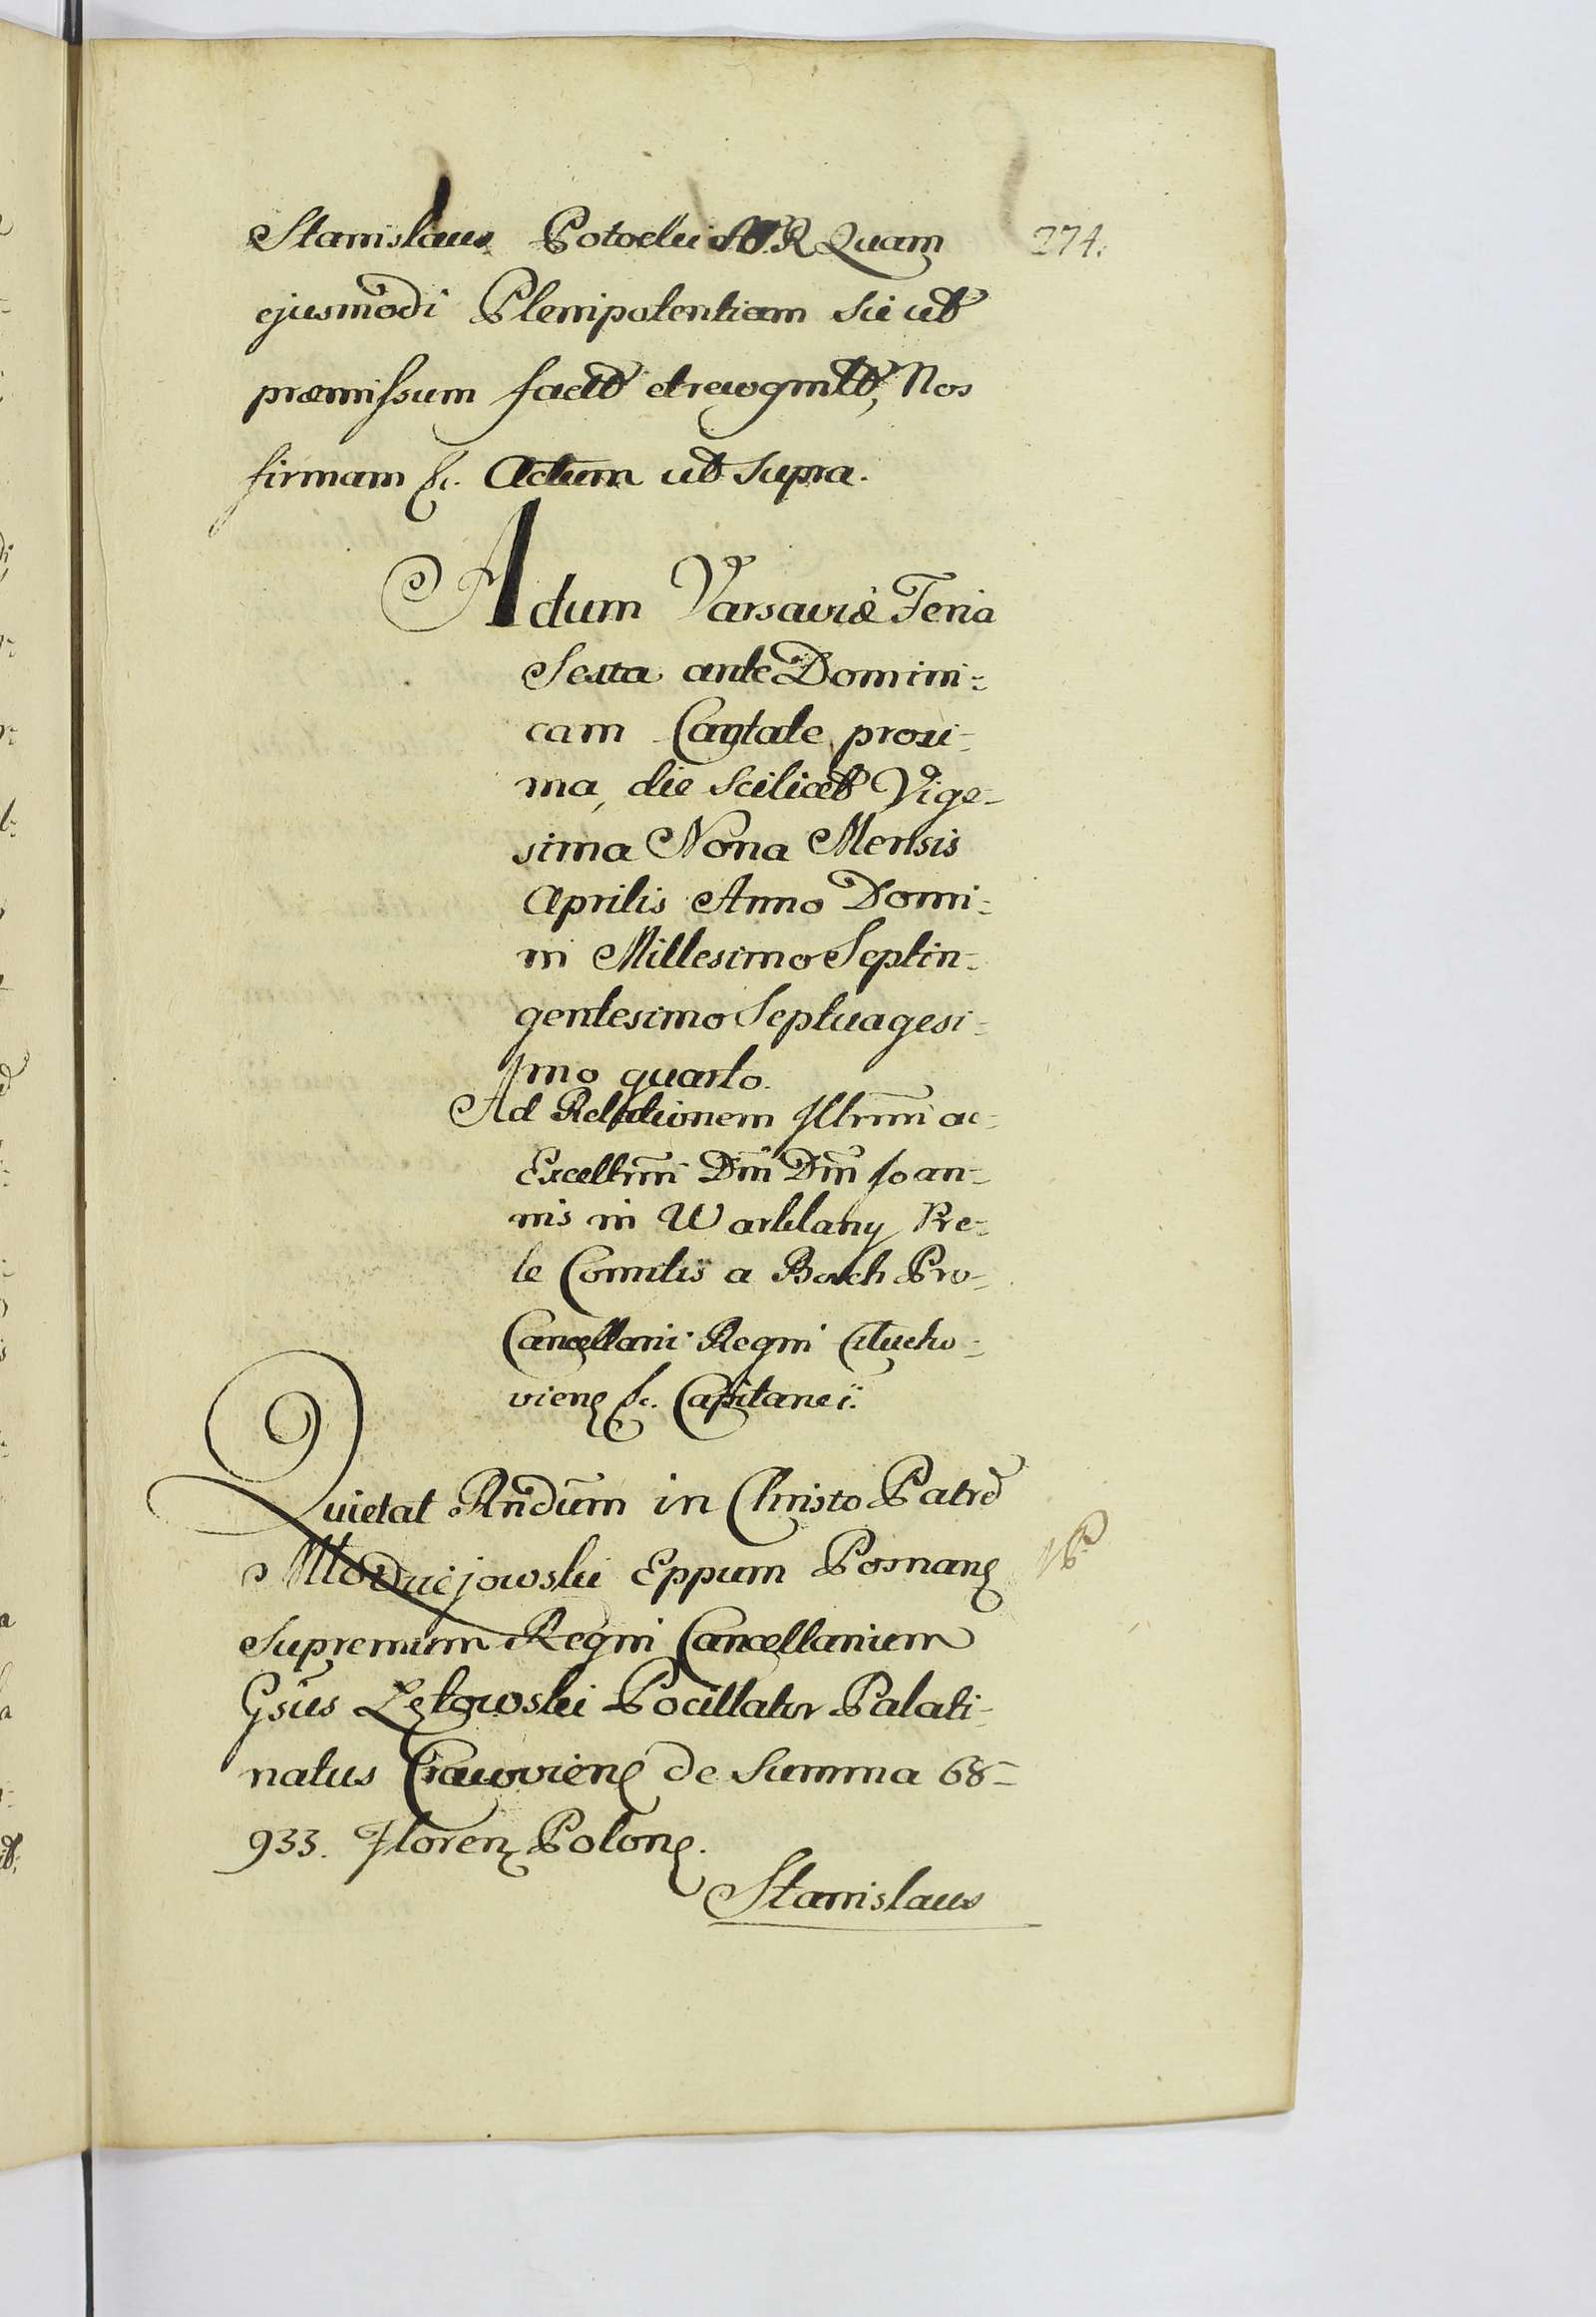 Stanislaus Potocki MR Quam 274.
ejusmodi Plenipotentiam sic ut
præmissum fact et recognit, Nos
firmam &c. Actum ut supra.
Actum Varsaviæ Feria
Sexta ante Domini=
cam Cantate proxi=
ma, die scilicet Vige=
sima Nona Mensis
Aprilis Anno Domi=
ni Millesimo Septin=
gentesimo Septuagesi=
mo quarto.
Ad Relationem Illrmi ac=
Excellmi Dni Dni Joan=
nis in Warklany Pre=
le Comitis a Borch Pro=
Cancellarii Regni
vien &c. Capitanei.
Quietat Rndum in Christo Patre
Młodziejowski Eppum Posnan
Supremum Regni Cancellarium
Gsus Łętowski Pocillator Palati=
natus Cracovien de summa 68=
933. Floren Polon.
Stanislaus